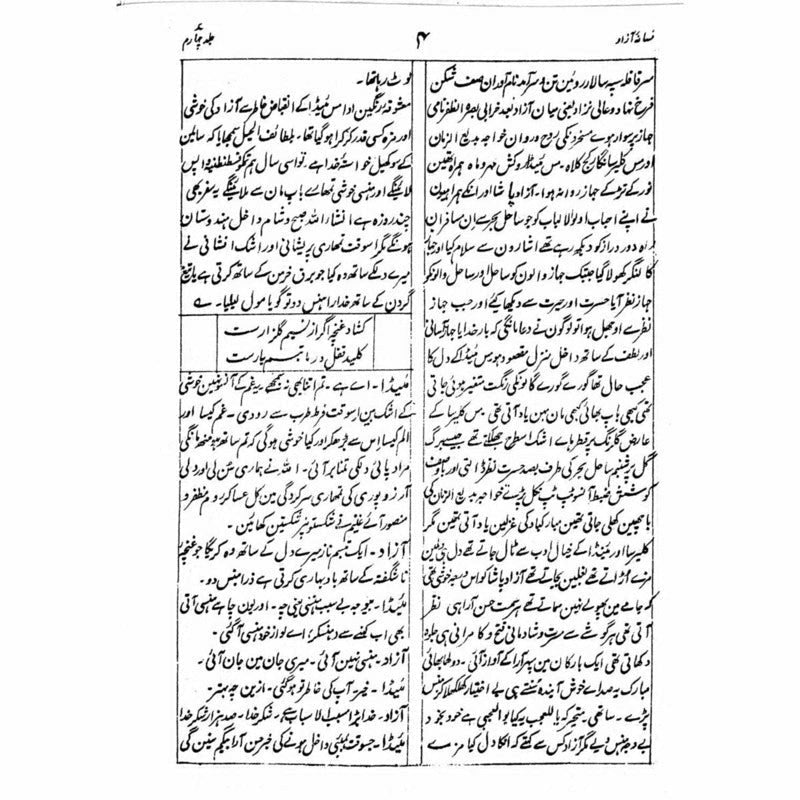 فسانۂ آزاد
۴
جلد چہارم
سر قافلہ سپہ سالار روئین تن و سرآمد نام آوران صف شکن
فرخ نہاد و عالی نژاد یعنی میان آزاد بعد خرابی
جہاز پر سوار ہوے سنجر دنکی روح و روان خواجہ بدیع الزمان
اور مس کلیرسا کج کلاہ۔ مس میڈا روکش مہر و ماہ ہمراہ تھین
نور کے تڑکے جہاز روانہ ہوا۔ آزاد پاشا اور انکے ہمراہیون
نے اپنے احباب اولو الالباب کو جو ساحل بحر سے ان مسافران
راہ دور دراز کو دیکھ رہے تھے اشارون سے سلام کیا اور جہاز
کا لنگر کھولا گیا جبتک جہاز والون کو ساحل اور ساحل والونکو
جہاز نظر آیا حسرت اور حیرت سے دیکھا کیے اور جب جہاز
نظر سے اوجھل ہوا تو لوگون نے دعا مانگی کہ بار خدایا جہاز آسانی
اور لطف کے ساتھ داخل منزل مقصود ہو مس میڈا کے دل کا
عجب حال تھا گورے گورے گالونکی رنگت متغیر ہوئی جاتی
تھی کبھی باپ بھائی کبھی مان بہن یاد آتی تھی۔ مس کلیرسا کے
عارض گلرنگ پر قطرہاے اشک اسطرح جھلکتے تھے جیسے برگ
گل پر شبنم ساحل بحر کی طرف بصد حسرت نظر ڈالتی اور باوصف
کوشش ضبط آنسو ٹپ ٹپ نکل پڑتے خواجہ بدیع الزمان کی
باچھین کھلی جاتی تھین مبارکباد کی غزلین یاد آتی تھین مگر
کلیرسا اور میڈا کے خیال ادب سے ٹال جاتے تھے دل ہی دلمین
مزے اڑاتے تھے بغلین بجاتے تھے آزاد پاشا کو اس درجہ خوشی تھی
کہ جامے مین پھولے نہین سماتے تھے ہر سمت حسن آرا ہی نظر
آتی تھی ہر گوشے سے مسرت و شادمانی فتح و کامرانی ہی جلوہ
دکھاتی تھی ایک بار کان مین سپہر آرا کے آواز آئی۔ دولھا بھائی
مبارک یہ صداے خوش آیند سنتے ہی بے اختیار کھلکھلا کر ہنس
پڑے۔ ساتھی متحیر کہ یا للعجب یہ کیا بو العجبی ہے خود بخود
بے وجہ ہنس دیے مگر آزاد کس سے کہتے کہ انکا دل کیا مزے
لوٹ رہا تھا۔
معشوقۂ رنگین ادا مس میڈا کے انقباض خاطر سے آزاد کی خوشی
اور مزہ کسی قدر کرکرا ہو گیا تھا۔ بلطائف الحیل سمجھایا کہ سال مین
کے سو کھیل خواستۂ خدا ہے تو اسی سال ہم تمکو قسطنطنیہ واپس
لائینگے اور ہنسی خوشی تمھارے باپ مان سے ملائینگے یہ سفر بھی
چند روزہ ہے انشار اللہ صبح و شام مرداخل ہندوستان
ہونگے مگر اسوقت تمھاری پریشانی اور اشک افشانی نے
میرے دلکے ساتھ وہ کیا جو برق خرمن کے ساتھ کرتی ہے یا تیغ
گردن کے ساتھ خدارا ہنس دو تو گویا مول لیلیا۔ ے
کشاد غنچہ اگر از نسیم گلزارست
کلید قفل در ما تبسم یارست
میڈا۔ اے ہے۔ تم اتنا بھی نہ سمجھے یہ غم کے آنسو نہین خوشی
کے اشک ہین اسوقت فرط طرب سے رو دی۔ غم کیسا اور
الم کیسا اس سے بڑھکر اور کیا خوشی ہوگی کہ تم ساتھ ہو منھ مانگی
مراد پائی دلکی تمنا بر آئی۔ اللہ نے ہماری سن لی اور دلی
آرزو پوری کی تمھاری سرکردگی مین کل عساکر روم مظفر و
منصور آئے غنیم نے شکستو پر شکستین کھائین۔
آزاد۔ ایک تبسم ناز میرے دل کے ساتھ وہ کریگا جو غنچۂ
ناشگفتہ کے ساتھ باد بہاری کرتی ہے ذرا ہنس دو۔
میڈا۔ بیوجہ بے سبب ہنسنی یعنی چہ۔ اور یون چاہے ہنسی آتی
بھی اب کہنے سے نہ ہنسنگی اے لو از خود ہنسی آگئی۔
آزاد۔ ہنسی نہین آئی۔ میری جان مین جان آئی۔
میڈا۔ خیر آپ کی خاطر تو ہو گئی۔ ازین چہ بہتر۔
آزاد۔ خدا بڑا مسبب الاسباب ہے۔ شکر خدا۔ صد ہزار شکر خدا
میڈا۔ جسوقت بمبئی داخل ہونے کی خبر حسن آرا بیگم سنین گی